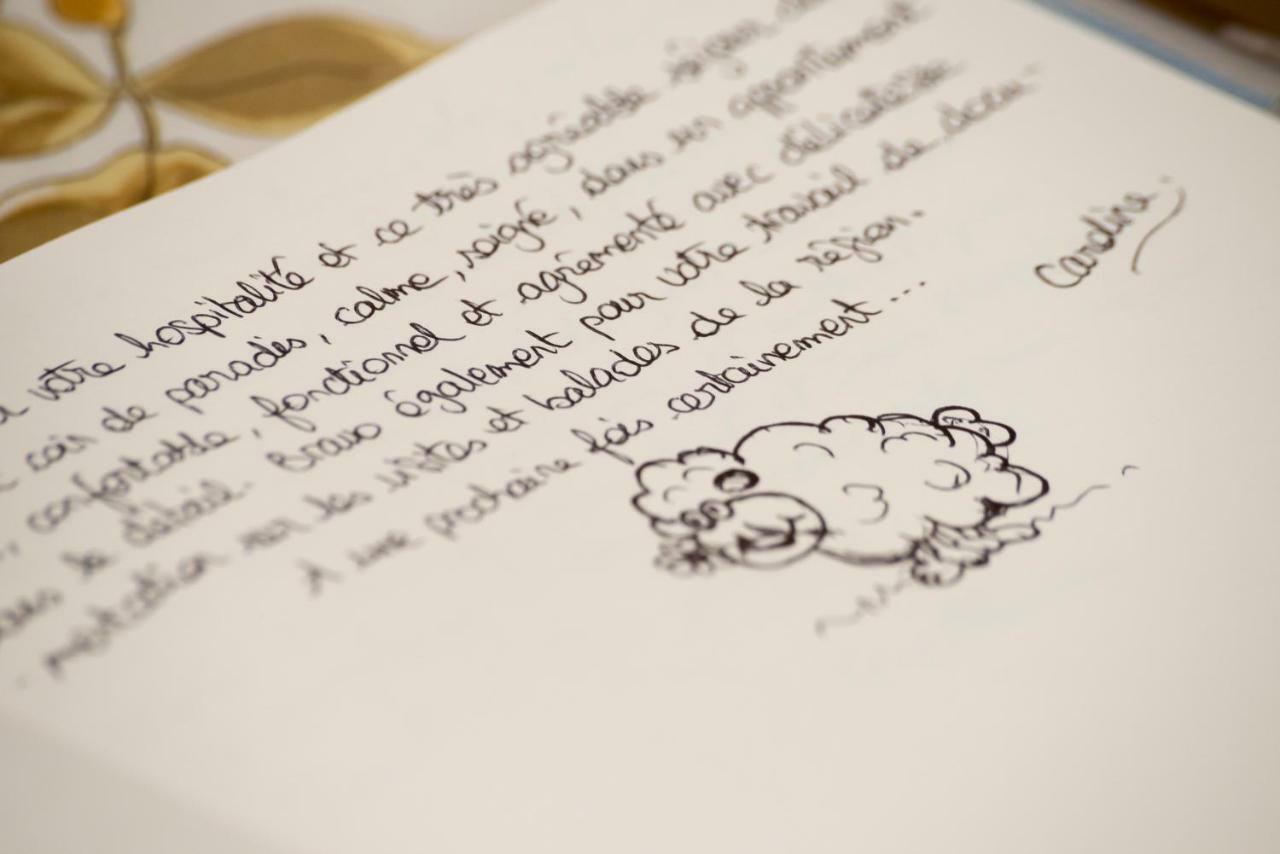 votre hospitalité et ce très agréable séjour
coin de paradis, calme, soigné, dans un appartement
confortable, fonctionnel et agrémenté avec délicatesse
dans le détail. Bravo également pour votre travail de docu-
mentation sur les visites et balades de la région.
A une prochaine fois certainement...
Caroline.